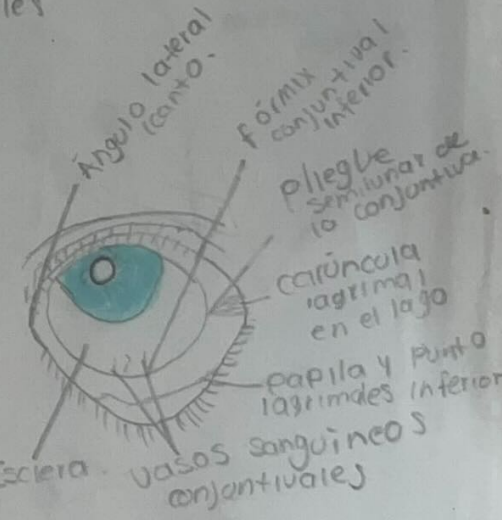 les
Ángulo lateral
(canto.
fórmix
conjuntival
inferior.
pliegue
semilunar de
la conjuntiva.
carúncula
lagrimal
en el lago
papila y punto
lagrimales inferior
Esclera.
vasos sanguineos
conjantivales